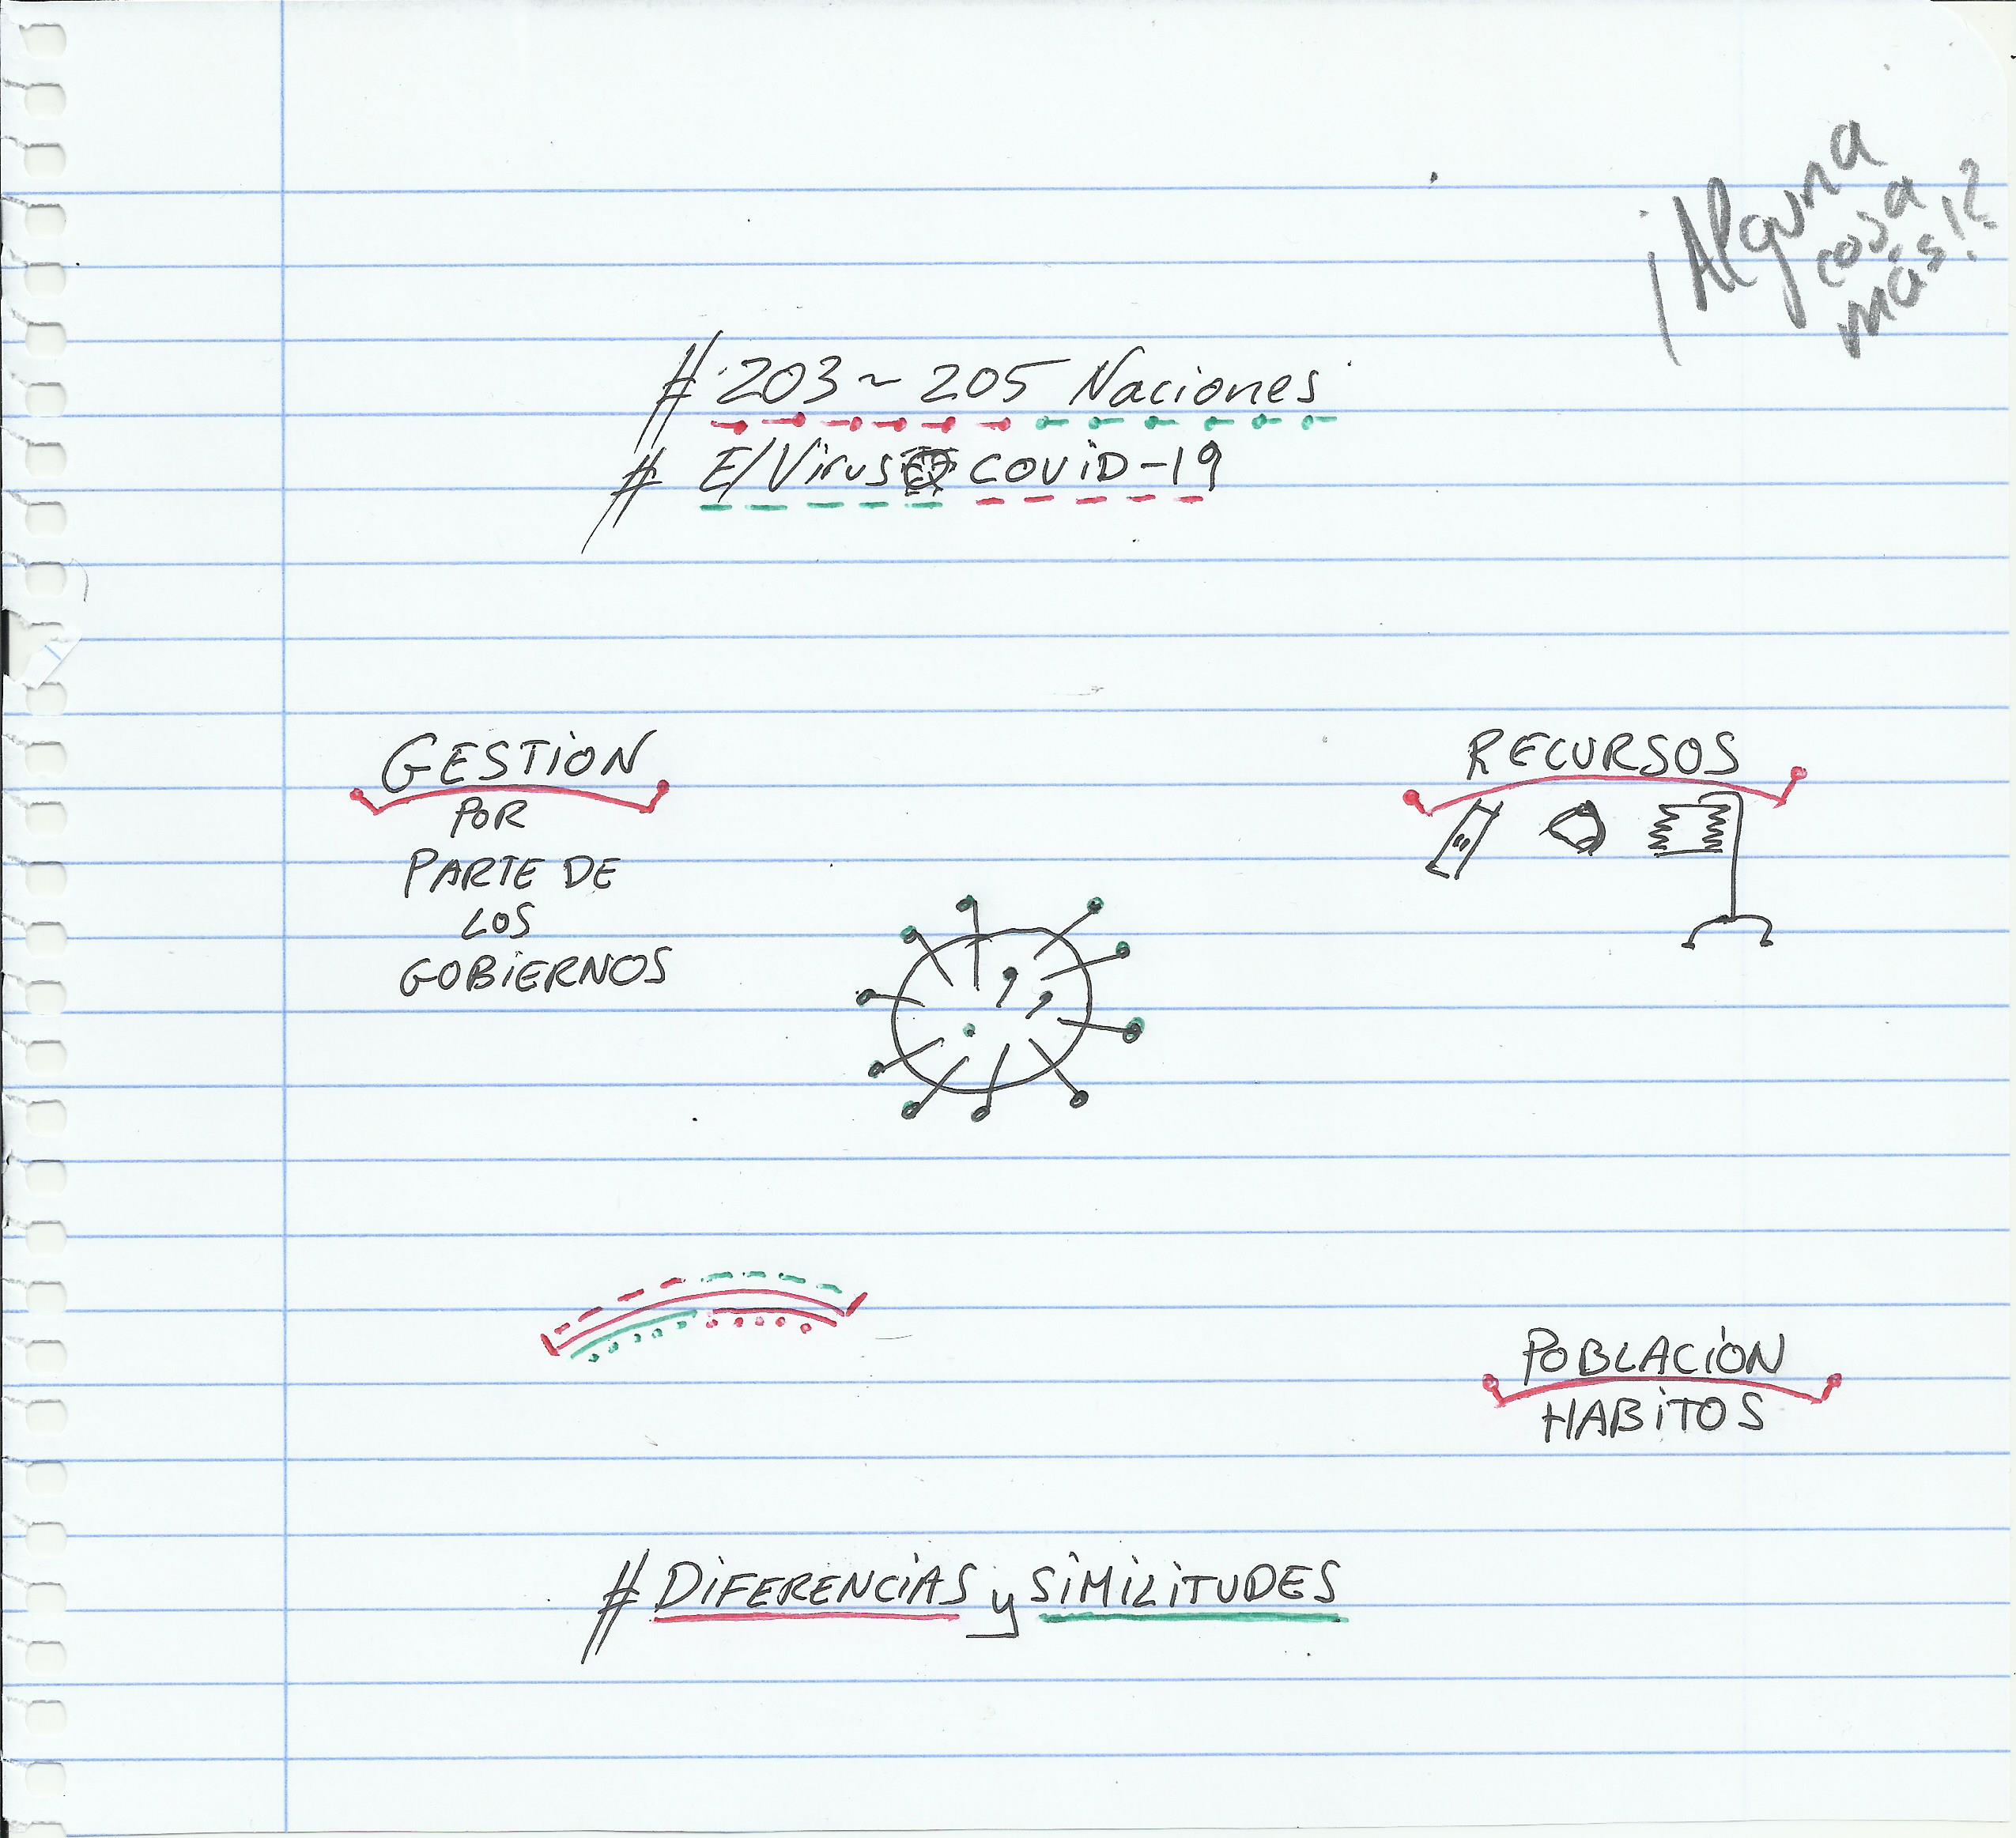 ¡Alguna
cosa
más!?
# 203 ~ 205 Naciones
# El Virus COViD-19
GESTiON
POR
PARTE DE
LOS
GOBiERNOS
RECURSOS
POBLACiÓN
HABiTOS
# DiFERENCiAS y SiMiLiTUDES